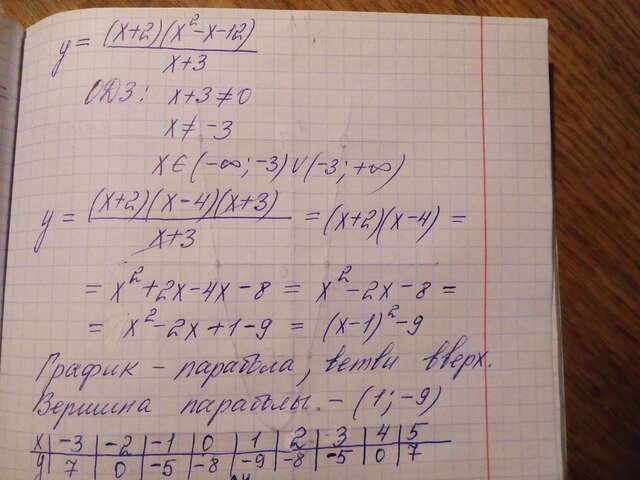 y = (x+2)(x²-x-12)
x+3
ОДЗ: x+3≠0
x≠-3
x∈(-∞;-3)∪(-3;+∞)
y = (x+2)(x-4)(x+3) / x+3 = (x+2)(x-4) =
= x²+2x-4x-8 = x²-2x-8 =
= x²-2x+1-9 = (x-1)²-9
График - парабола, ветви вверх.
Вершина параболы - (1;-9)
x | -3 | -2 | -1 | 0 | 1 | 2 | 3 | 4 | 5
y | 7 | 0 | -5 | -8 | -9 | -8 | -5 | 0 | 7